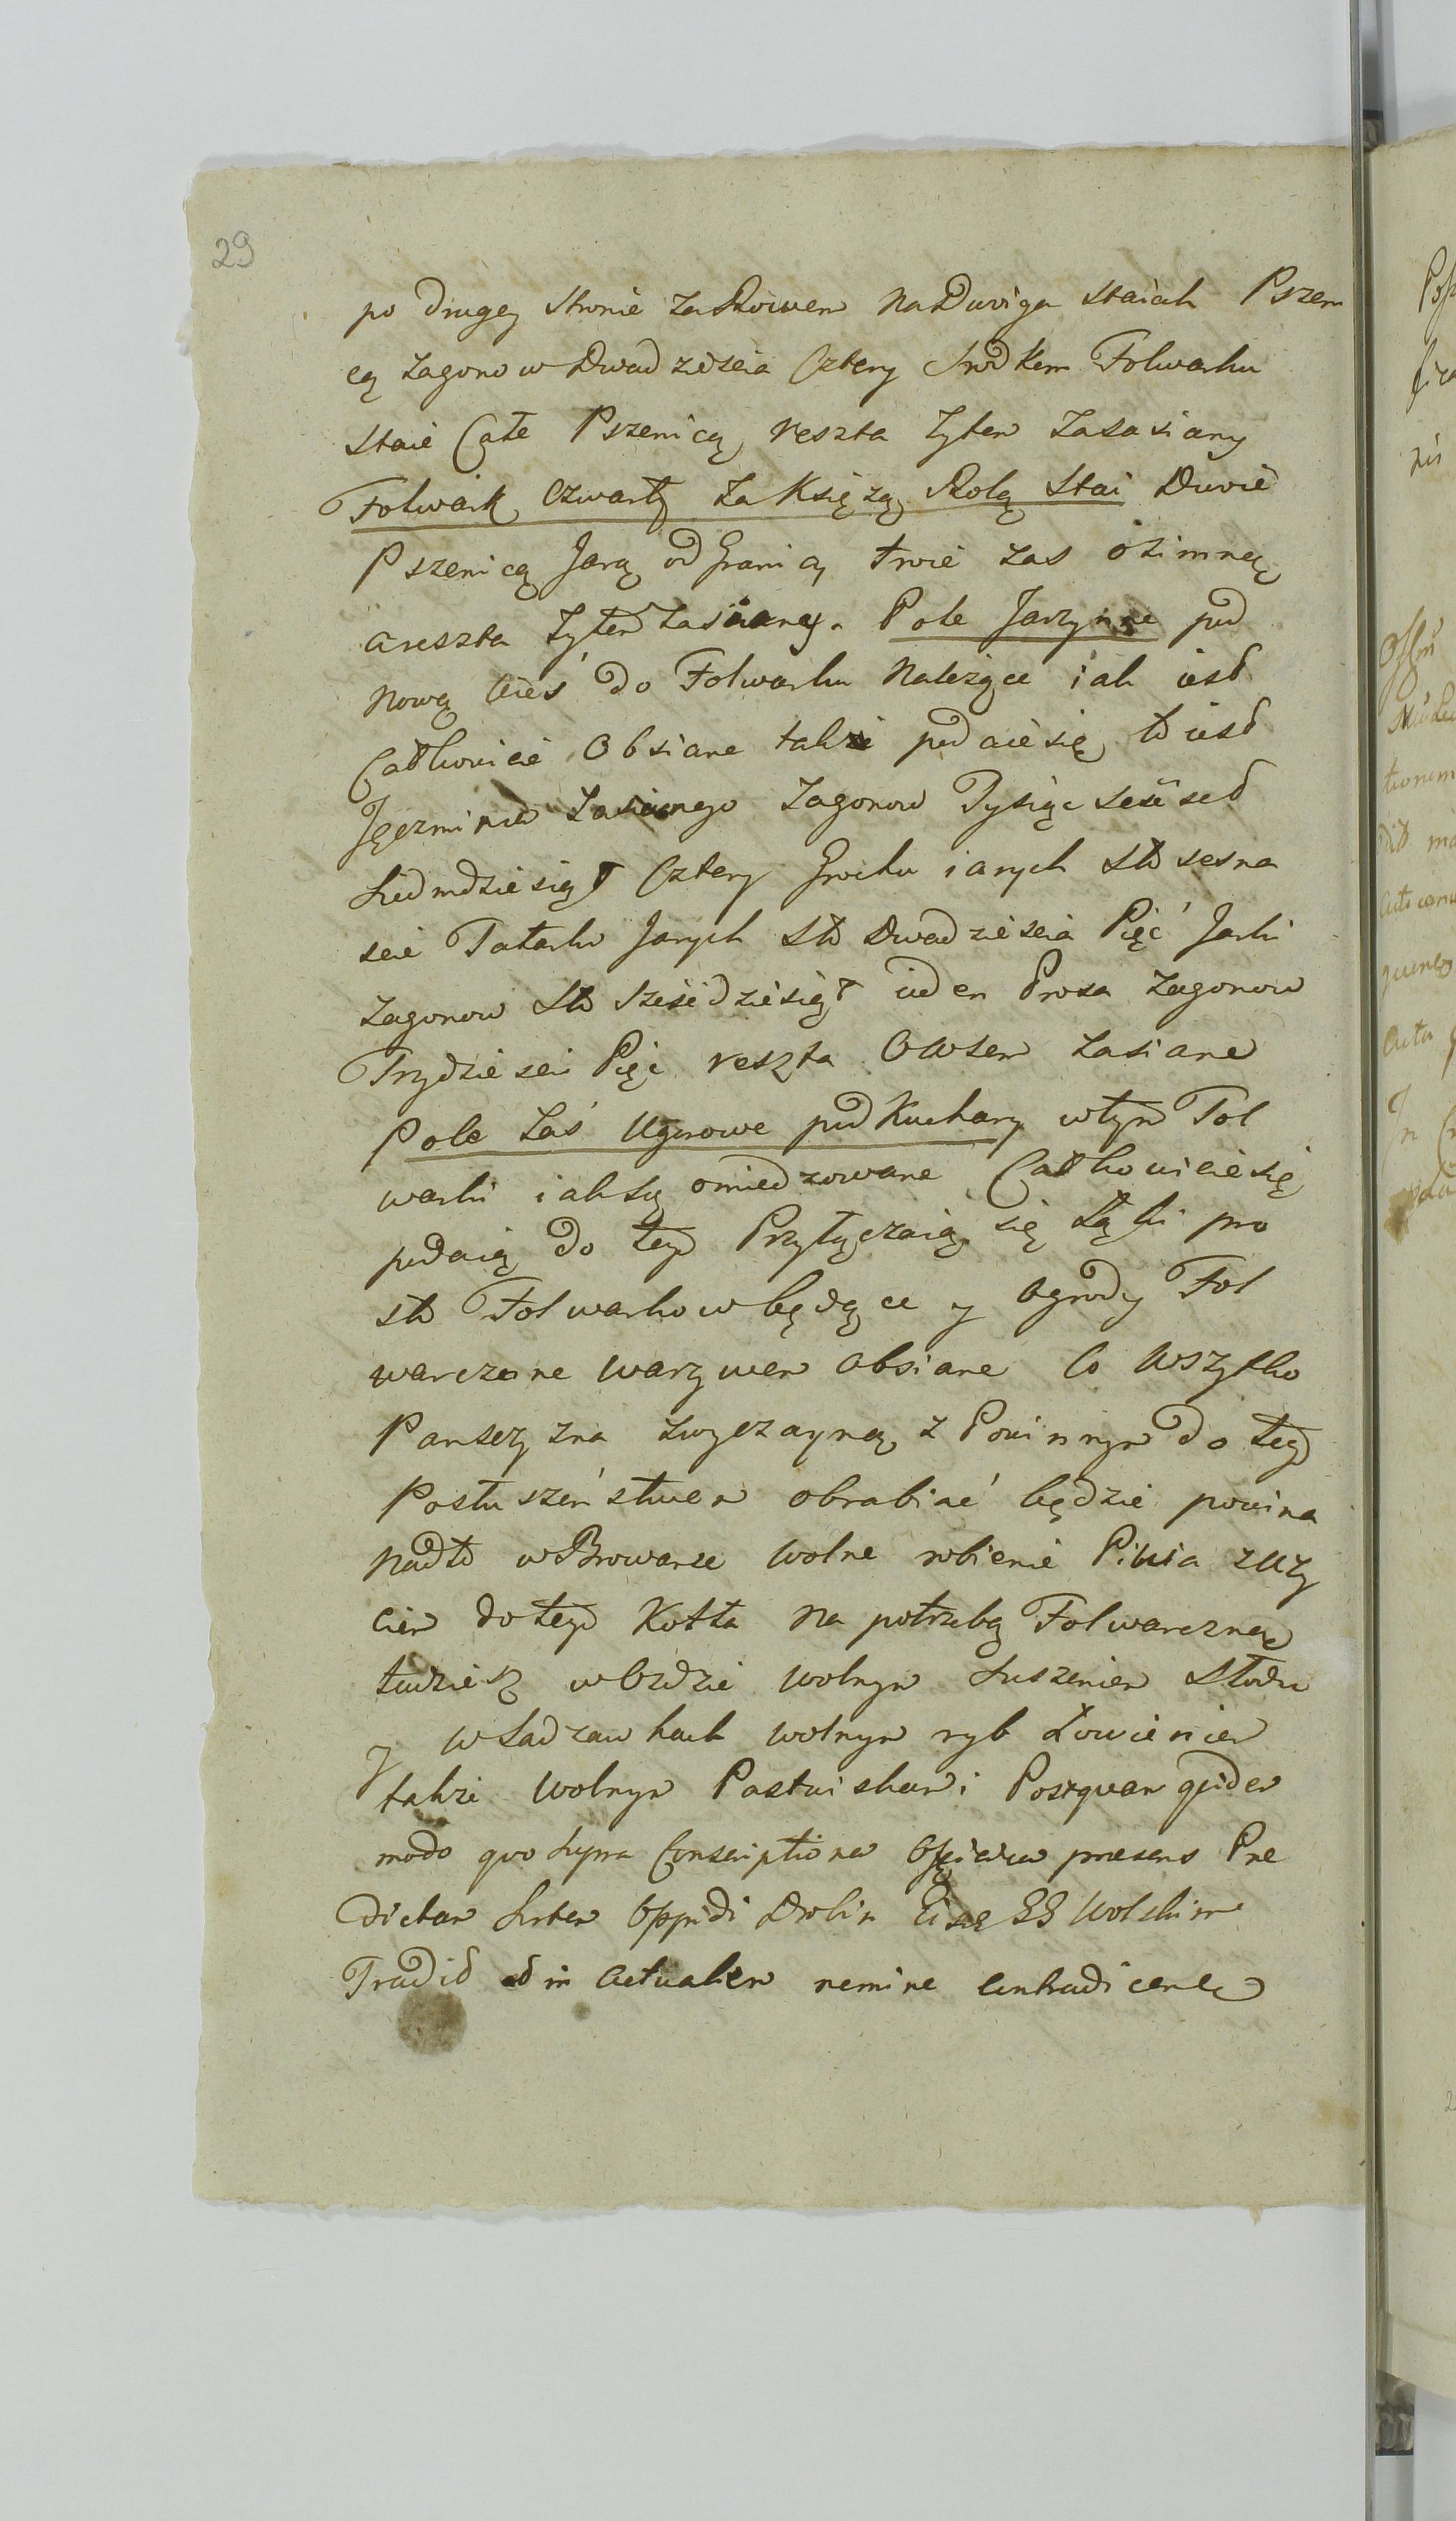 29
po drugey stronie za Rowem na Dwoiga staiach Pszeni
cą zagonow Dwadziescia Cztery srodkem Folwarku
staie Całe Pszenicą, reszta Zytem Zasasiany
Folwark czwarty za Księzą Rolą Stai Dwoie
Pszenicą Jarą od Granicy troie zas ozimnęą
a reszta Zytem Zasiany. Pole Jarzynne pod
nową wieś do Folwarku nalezące iak iest
Całkowicie Obsiane takze podaie się, to iest
Jęczmienia Zasianego Zagonow Tysiąc sescset
siedmdziesiąt Cztery Grochu iarych sto sesna
scie Tatarki Jarych sto Dwadziescia Pięć Jarki
zagonow sto szescdziesiąt ieden Prosa zagonow
Trzydziesci Pięc reszta Owsem zasiane
Pole Zaś Ugorowe pod Kuchary w tym Fol
warki iak są omiedzowane Całkowicie się
podaią do tego Przyłączaią się Łąki pro
sto Folwarkow będące y ogrody Fol
warczone warzywem obsiane Co wszytko
Panszczyzna zwyczayną z Powinnym do tego
Posłuszeństwem obrabiać będzie powina
nadto w Browarze wolne robienie Piwa z uzy
ciem do tego Kotła na potrzebę Folwarczną
tudziesz w Ozdzie wolnym suszeniem słodu
y w Sadzawkach wolnym ryb Łowieniem
takze wolnym Pastwiskami Postquam quidem
modo quo supra Conscriptionem Officium praesens Pre
dictam Sortem Oppidi Drobin Eisdem GG Wolskim
Tradid et in actualem nemine contradicente